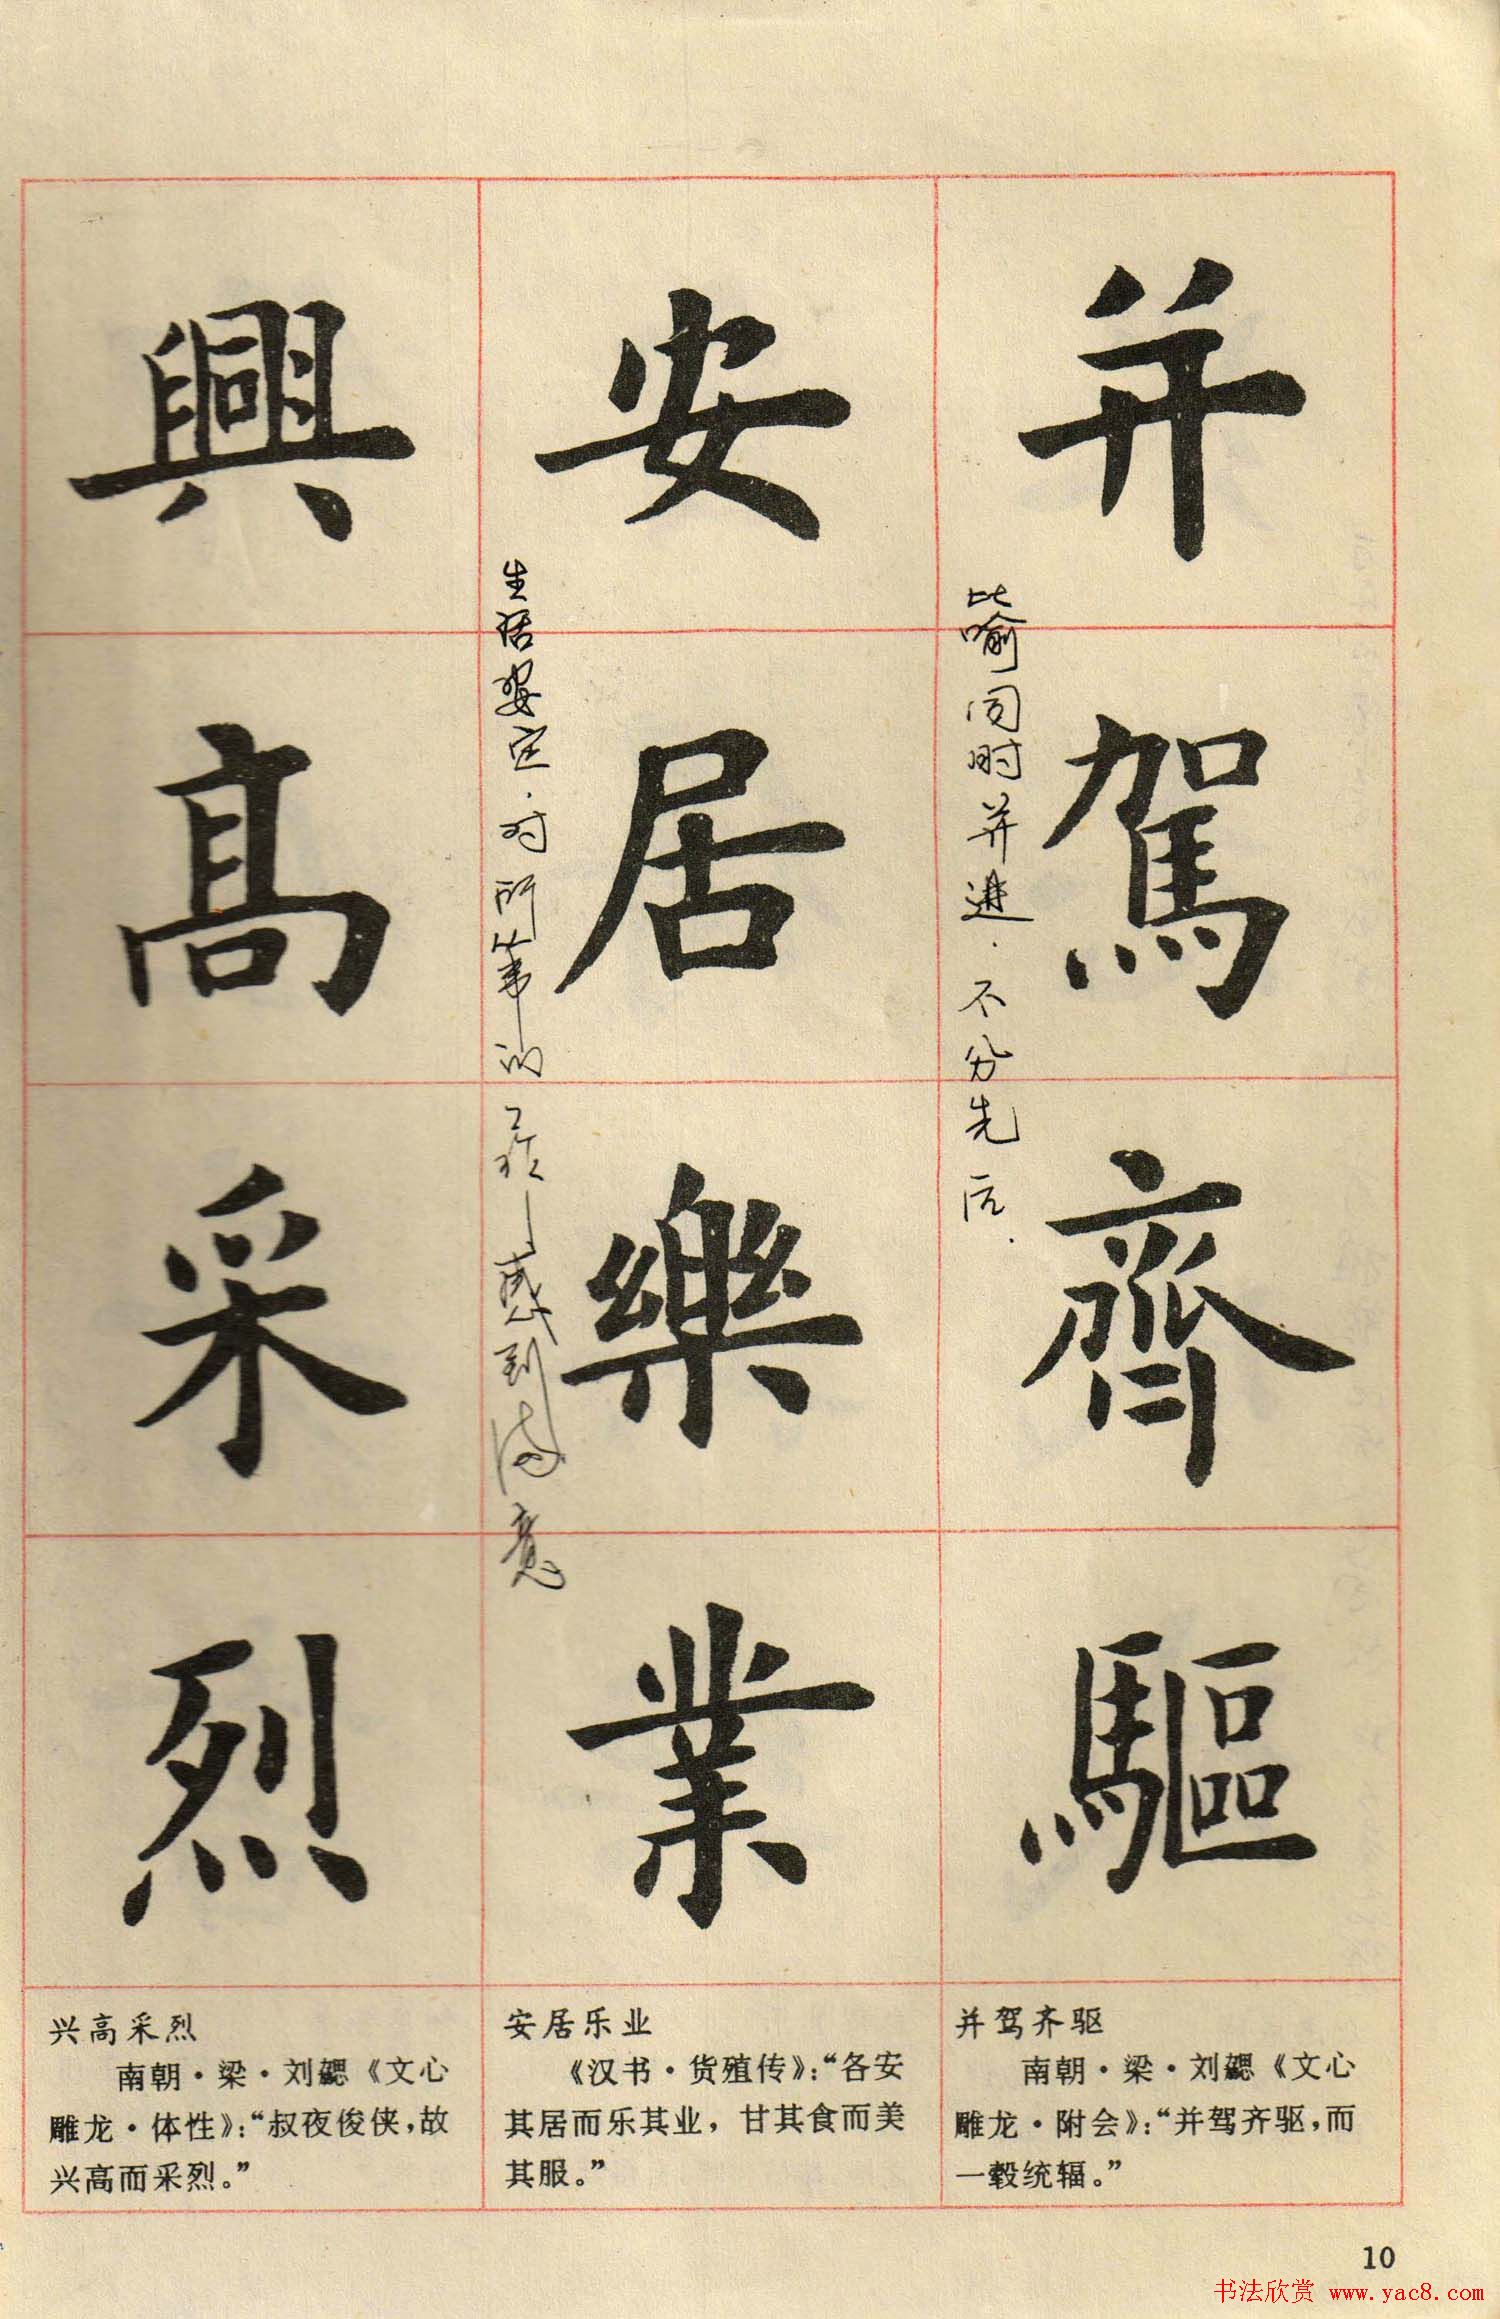 并駕齊驅
比喻同时并进.不分先后.
安居樂業
生活安定.对所从事的工作感到满意
興高采烈
并驾齐驱
南朝·梁·刘勰《文心
雕龙·附会》:“并驾齐驱,而
一毂统辐。”
安居乐业
《汉书·货殖传》:“各安
其居而乐其业，甘其食而美
其服。”
兴高采烈
南朝·梁·刘勰《文心
雕龙·体性》:“叔夜俊侠,故
兴高而采烈。”
10
书法欣赏 www.yac8.com